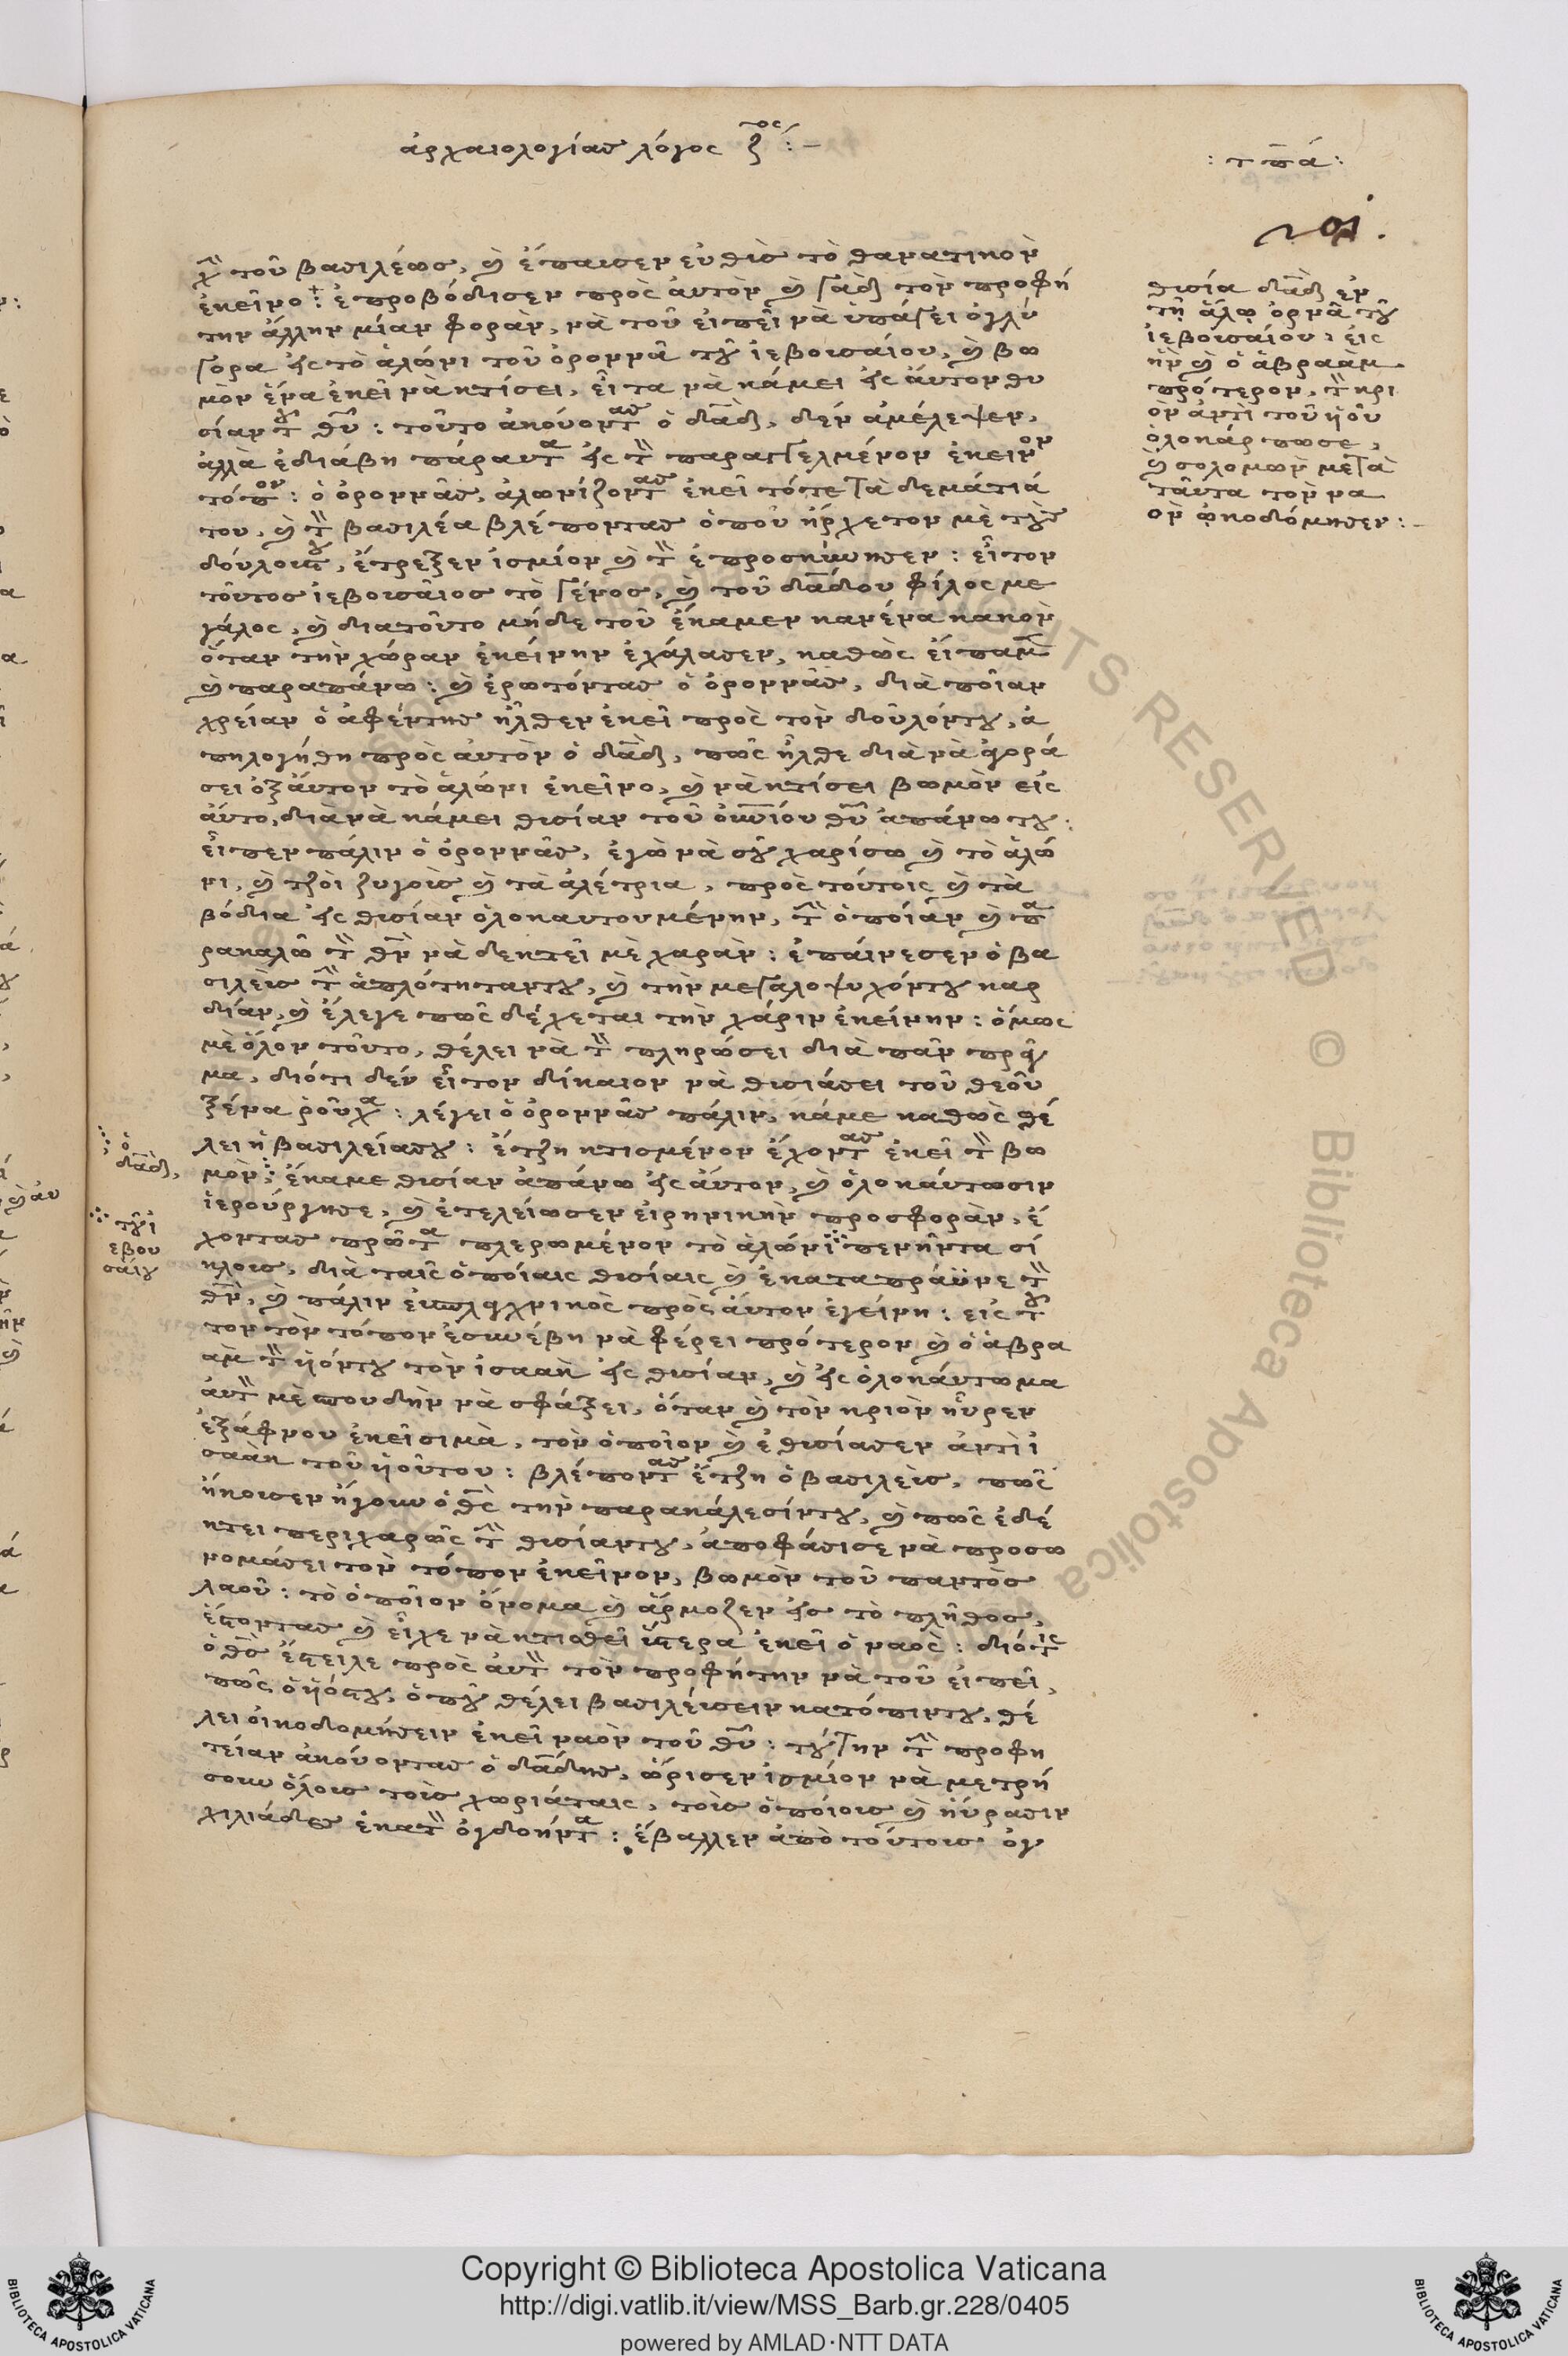 ἀρχαιολογίας λόγος ζος :–
: τπα :
χῆ τοῦ βασιλέως, καὶ ἔπαυσεν εὐθὺς τὸ θανατικὸν
ἐκεῖνο : ἐπροβόδισεν πρὸς αὐτὸν καὶ γὰδ τὸν προφή
την ἄλλην μίαν φορὰν, νὰ τοῦ εἰπεῖ νὰ ὑπάγει ὀγλύ
γορα εἰς τὸ ἁλώνι τοῦ ὀρονκᾶ τοῦ ἰεβουσαίου, καὶ βω
μὸν ἕνα ἐκεῖ νὰ κτίσει, εἶτα νὰ κάμει εἰς αὐτον θυ
σίαν τοῦ θυ : τοῦτο ἀκούοντας ὁ δαδ, δὲν ἀμέλεψεν,
ἀλλὰ ἐδιάβη πάραυτα εἰς τὸν παραγγελμένον ἐκεῖνον
τόπον : ὁ ὀρονκᾶς, ἀλωνίζοντας ἐκεῖ τότε τὰ δεμάτιά
του, καὶ τὸν βασιλέα βλέποντας ὁποῦ ἤρχετον μὲ τοὺς
δούλους του, ἔτρεξεν ἰσμίον καὶ τὸν ἐπροσκύνησεν : εἶτον
τοῦτος ἰεβουσαῖος τὸ γένος, καὶ τοῦ δαδου φίλος με
γάλος, καὶ διατοῦτο μήδε τοῦ ἔκαμεν κανένα κακὸν
ὅταν τὴν χώραν ἐκείνην ἐχάλασεν, καθὼς εἴπαμεν
καὶ παραπάνω : καὶ ἐρωτόντας ὁ ὀρονκᾶς, διὰ ποῖαν
χρείαν ὁ ἀφέντης ἦλθεν ἐκεῖ πρὸς τὸν δοῦλόντου, ἀ
πηλογήθη πρὸς αὐτὸν ὁ δαδ, πῶς ἦλθε διὰ νὰ ἀγορά
σει ἐξαὔτον τὸ ἁλώνι ἐκεῖνο, καὶ νὰ κτίσει βωμὸν εἰς
αὐτο, διὰ νὰ κάμει θυσίαν τοῦ κυρίου θυ ἀπάνω του :
εἶπεν πάλιν ὁ ὀρονκᾶς, ἐγὼ νὰ σοῦ χαρίσω καὶ τὸ ἁλώ
νι, καὶ τζοὶ ζυγοὺς καὶ τὰ ἀλέτρια, πρὸς τούτοις καὶ τὰ
βόδια εἰς θυσίαν ὁλοκαυτουμένην, τὴν ὁποίαν καὶ πα
ρακαλῶ τὸν θν νὰ δεκτεῖ μὲ χαρὰν : ἐπαίνεσεν ὁ βα
σιλεὺς τὴν ἁπλότηταντου, καὶ τὴν μεγαλοψυχόντου καρ
δίαν, καὶ ἔλεγε πῶς δέχεται τὴν χάριν ἐκείνην : ὅμως
μὲ ὅλον τοῦτο, θέλει νὰ τὸν πληρώσει διὰ πᾶν πρᾶγ
μα, διότι δὲν εἶτον δίκαιον νὰ θυσιάσει τοῦ θεοῦ
ξένα ῥοῦχα : λέγει ὁ ὀρονκᾶς πάλιν, κάμε καθὼς θέ
λει ἡ βασιλείασου : ἔτζη κτισμένον ἔχοντας ἐκεῖ τὸν βω
μὸν, ἔκαμε θυσίαν ἀπάνω εἰς αὐτον, καὶ ὁλοκαύτωσιν
ἱερούργησε, καὶ ἐτελείωσεν εἰρηνικὴν προσφορὰν, ἔ
χοντας πρῶτα πλερωμένον τὸ ἁλώνι πενῆντα σί
κλους, διὰ ταῖς ὁποίαις θυσίαις καὶ ἐκαταπράϋνε τὸν
θν, καὶ πάλιν εὐσπλαχνικὸς πρὸς αὐτον ἐγείνη : εἰς τοῦ
τον τὸν τόπον ἐσυνέβη νὰ φέρει πρότερον καὶ ὁ ἀβρα
ὰμ τὸν ἡόντου τὸν ἰσαὰκ εἰς θυσίαν, καὶ εἰς ὁλοκαύτωμα
αὐτὸν μὲ σπουδὴν νὰ σφάξει, ὅταν καὶ τὸν κριὸν ηὗρεν
ἐξάφνου ἐκεῖ σιμὰ, τὸν ὁποῖον καὶ ἐθυσίασεν ἀντὶ ἰ
σαὰκ τοῦ ἡοῦτου : βλέποντας ἔτζη ὁ βασιλεὺς, πῶς
ἤκουσεν ἤγουν ὁ θς τὴν παρακάλεσίντου, καὶ πῶς ἐδέ
κτει περιχαρῶς τὴν θυσίαντου, ἀποφάσισε νὰ προσω
νομάσει τὸν τόπον ἐκεῖνον, βωμὸν τοῦ παντὸς
λαοῦ : τὸ ὁποῖον ὄνομα καὶ ἅρμοζεν εἰς τὸ πλῆθος,
ἔστοντας καὶ εἶχε νὰ κτισθεῖ ὕστερα ἐκεῖ ὁ ναὸς : διότις
ὁ θς ἔστειλε πρὸς αὐτὸν τὸν προφήτην νὰ τοῦ εἰπεῖ,
πῶς ὁ ἡόστου, ὁποῦ θέλει βασιλεύσειν κατόπιντου, θέ
λει οἰκοδομήσειν ἐκεῖ ναὸν τοῦ θυ : τούτην τὴν προφη
τείαν ἀκούοντας ὁ δαδης, ὥρισεν ἰσμίον νὰ μετρή
σουν ὅλους τοὺς χωριάταις, τοὺς ὁποίους καὶ ηὕρασιν
χιλιάδες ἑκατὸν ὀγδοήντα : ἔβαλλεν ἀπὸ τούτους ὀγ
θυσία δαδ ἐν
τῇ ἅλῳ ὀρνᾶ τοῦ
ἰεβουσαίου, εἰς
ἣν καὶ ὁ ἀβραὰμ
πρότερον, τὸν κρι
ὸν ἀντὶ τοῦ ἡοῦ
ὁλοκάρπωσε,
καὶ σολομὼν μετὰ
ταῦτα τὸν να
ὸν ᾠκοδόμησεν :–
ὁ
δαδ,
τοῦ ἰ
εβου
σαίου
Copyright © Biblioteca Apostolica Vaticana
http://digi.vatlib.it/view/MSS_Barb.gr.228/0405
powered by AMLAD·NTT DATA